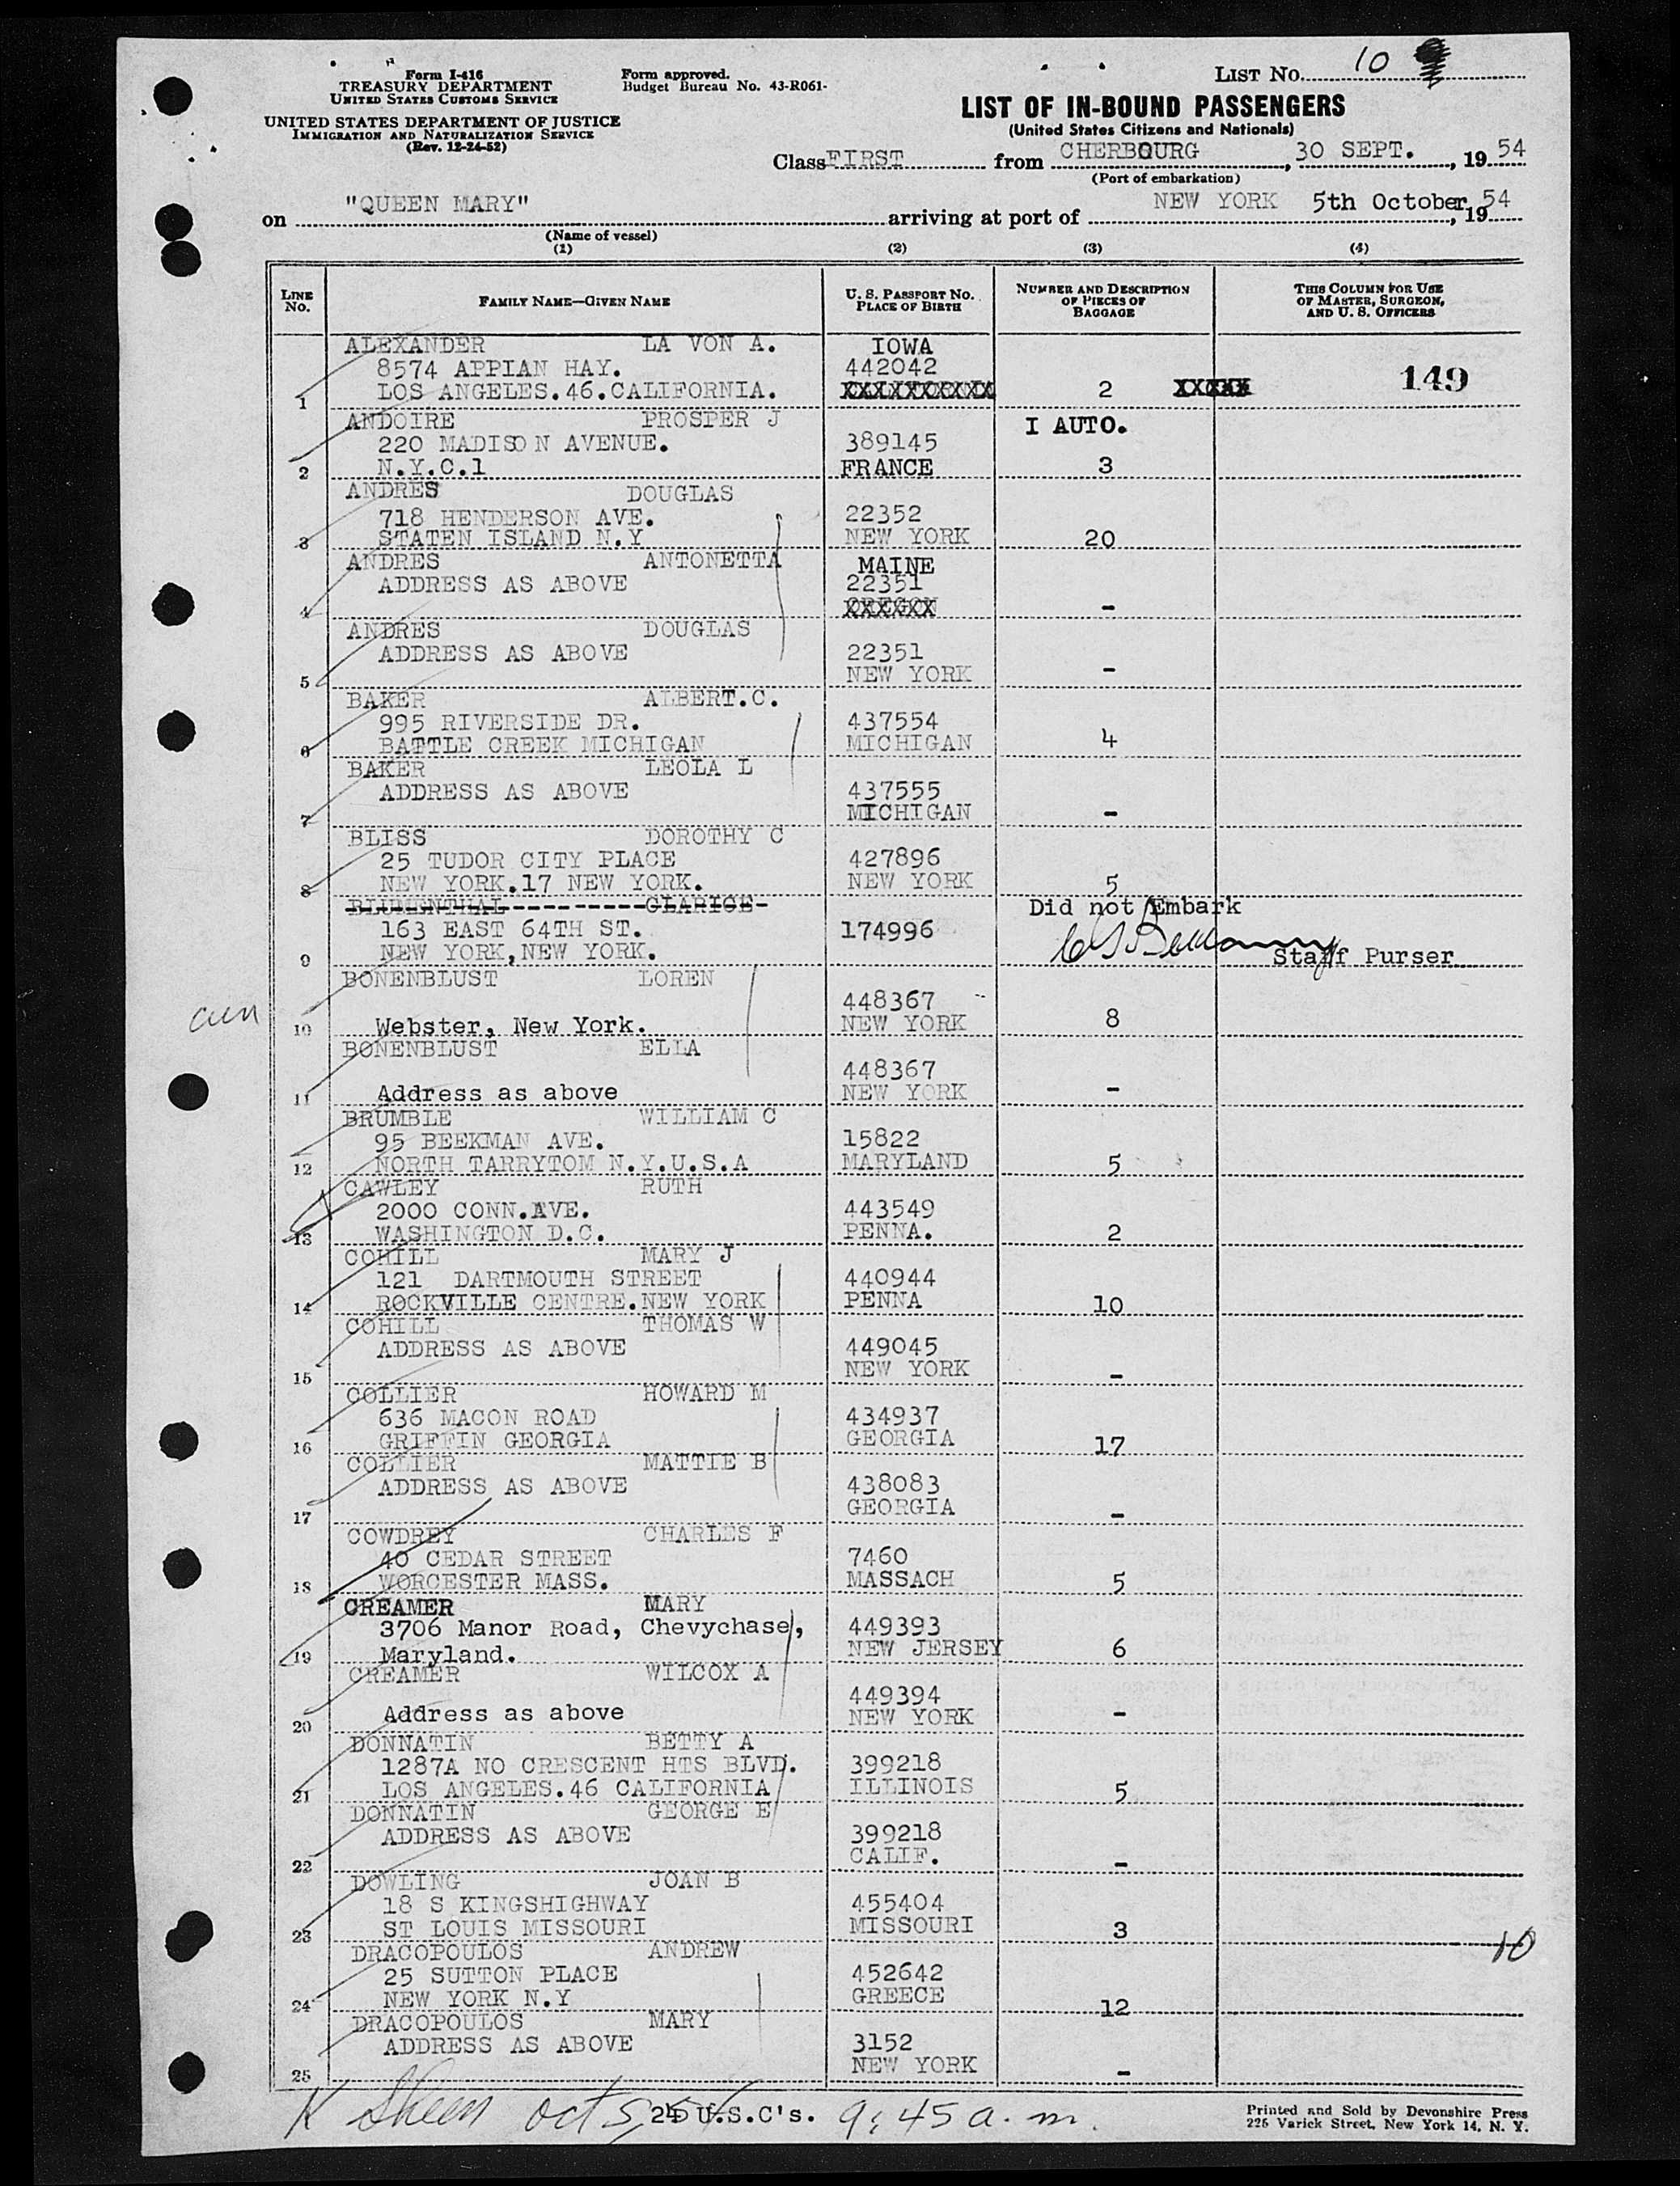 Form I-416
TREASURY DEPARTMENT
UNITED STATES CUSTOMS SERVICE
UNITED STATES DEPARTMENT OF JUSTICE
IMMIGRATION AND NATURALIZATION SERVICE
(Rev. 12-24-52)
Form approved.
Budget Bureau No. 43-R061-
LIST No. 10
LIST OF IN-BOUND PASSENGERS
(United States Citizens and Nationals)
Class FIRST from CHERBOURG, 30 SEPT., 19 54
(Port of embarkation)
on "QUEEN MARY" arriving at port of NEW YORK 5th October, 19 54
(Name of vessel)
(1) (2) (3) (4)
LINE NO. FAMILY NAME—GIVEN NAME U. S. PASSPORT NO. PLACE OF BIRTH NUMBER AND DESCRIPTION OF PIECES OF BAGGAGE THIS COLUMN FOR USE OF MASTER, SURGEON, AND U. S. OFFICERS
ALEXANDER LA VON A. IOWA
8574 APPIAN HAY. 442042
1 LOS ANGELES.46.CALIFORNIA. XXXXXXXXXX 2 XXXXX 149
ANDOIRE PROSPER J I AUTO.
220 MADISON AVENUE. 389145
2 N.Y.C.1 FRANCE 3
ANDRES DOUGLAS
718 HENDERSON AVE. 22352
3 STATEN ISLAND N.Y NEW YORK 20
ANDRES ANTONETTA MAINE
ADDRESS AS ABOVE 22351
4 -
ANDRES DOUGLAS
ADDRESS AS ABOVE 22351
5 NEW YORK -
BAKER ALBERT.C.
995 RIVERSIDE DR. 437554
6 BATTLE CREEK MICHIGAN MICHIGAN 4
BAKER LEOLA L
ADDRESS AS ABOVE 437555
7 MICHIGAN -
BLISS DOROTHY C
25 TUDOR CITY PLACE 427896
8 NEW YORK.17 NEW YORK. NEW YORK 5
BLUMENTHAL----------CLARICE- Did not Embark
163 EAST 64TH ST. 174996
9 NEW YORK,NEW YORK. Staff Purser
BONENBLUST LOREN
448367
10 Webster, New York. NEW YORK 8
BONENBLUST ELLA
448367
11 Address as above NEW YORK -
BRUMBLE WILLIAM C
95 BEEKMAN AVE. 15822
12 NORTH TARRYTOM N.Y.U.S.A MARYLAND 5
CAWLEY RUTH
2000 CONN.AVE. 443549
13 WASHINGTON D.C. PENNA. 2
COHILL MARY J
121 DARTMOUTH STREET 440944
14 ROCKVILLE CENTRE.NEW YORK PENNA 10
COHILL THOMAS W
ADDRESS AS ABOVE 449045
15 NEW YORK -
COLLIER HOWARD M
636 MACON ROAD 434937
16 GRIFFIN GEORGIA GEORGIA 17
COLLIER MATTIE B
ADDRESS AS ABOVE 438083
17 GEORGIA -
COWDREY CHARLES F
40 CEDAR STREET 7460
18 WORCESTER MASS. MASSACH 5
CREAMER MARY
3706 Manor Road, Chevychase, 449393
19 Maryland. NEW JERSEY 6
CREAMER WILCOX A
449394
20 Address as above NEW YORK -
DONNATIN BETTY A
1287A NO CRESCENT HTS BLVD. 399218
21 LOS ANGELES.46 CALIFORNIA ILLINOIS 5
DONNATIN GEORGE E
ADDRESS AS ABOVE 399218
22 CALIF. -
DOWLING JOAN B
18 S KINGSHIGHWAY 455404
23 ST LOUIS MISSOURI MISSOURI 3
10
DRACOPOULOS ANDREW
25 SUTTON PLACE 452642
24 NEW YORK N.Y GREECE 12
DRACOPOULOS MARY
ADDRESS AS ABOVE 3152
25 NEW YORK -
K Skeen Oct 5, 54 24 U.S.C's. 9:45 a.m.
Printed and Sold by Devonshire Press
225 Varick Street, New York 14, N. Y.